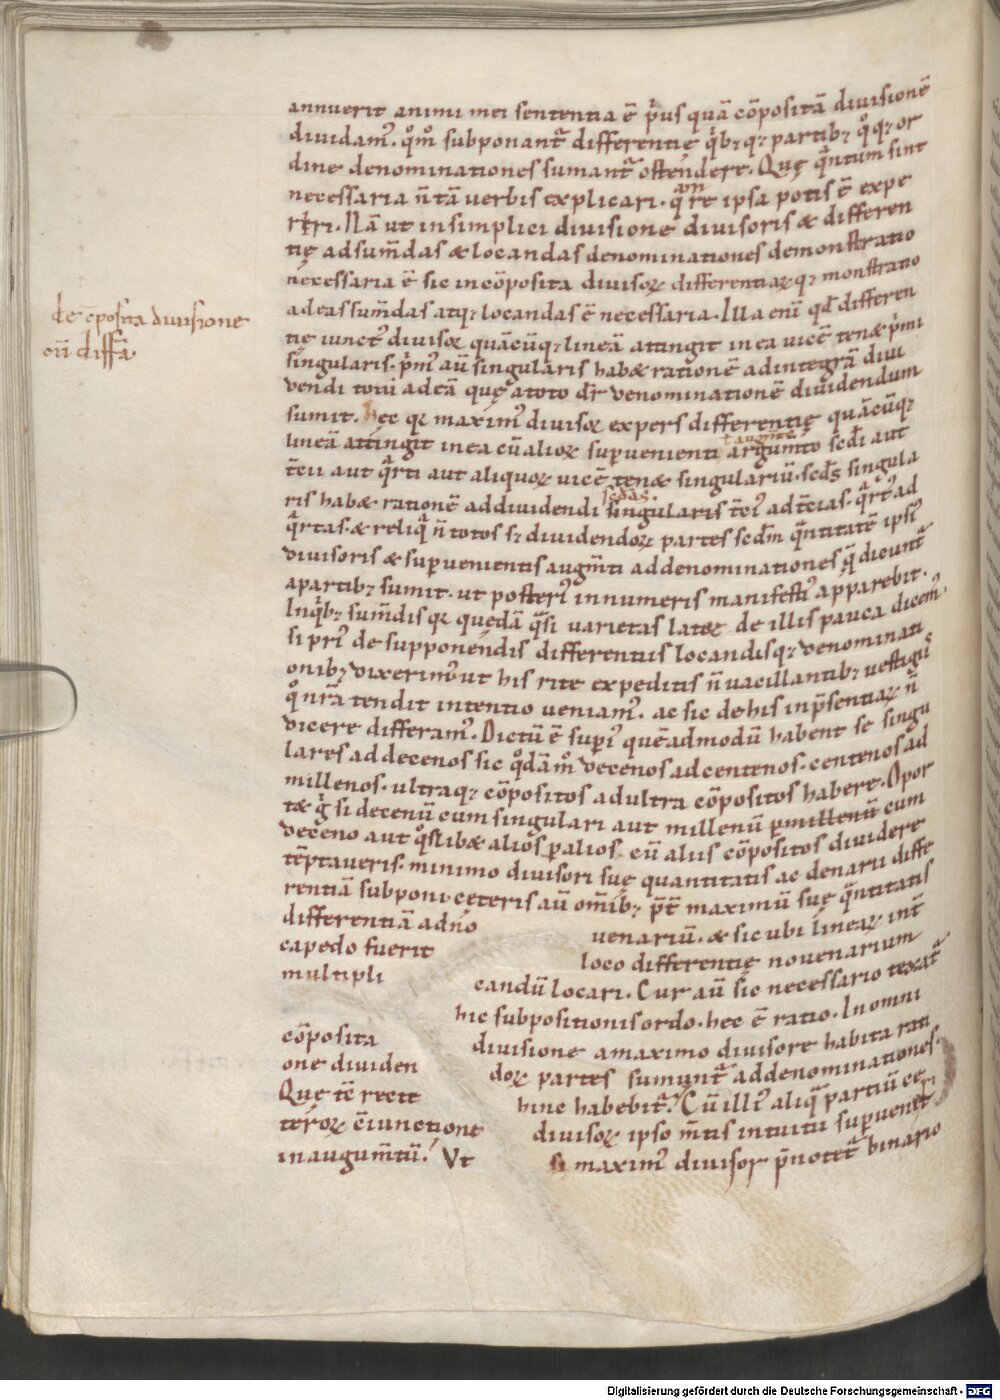 annuerit animi mei sententia ē p̓us quā cōpositā diuisionē
diuidam᷒. qͦm̊ subponant᷑ differentię qͥbꝫ qꝫ partibꝫ qͦ qꝫ or
dine denominationes sumant᷑ ostendere. Quę qͣntum sint
necessaria n̄ tā uerbis explicari. qͣ re ipsa potis ē expe
riri. Nā ut in simplici diuisione diuisoris & differen
tię ad sum̄das & locandas denominationes demonstratio
necessaria ē sic in cōposita diuisoꝝ differentiaꝝ qꝫ monstratio
de cposita diuisione
cū diff̄a.
ad eas sum̄das atqꝫ locandas ē necessaria. Illa eni᷒ qd̄ differen
tie iunct᷒ diuisoꝝ quācūqꝫ lineā attingit in ea uicē ten& p̓mi
singularis. p̓m᷒ aū singularis hab& rationē ad integrā diui
dendi toti᷒ ad eā quę a toto dr̄ denominationē diuidendum
sumit. Hec qꝫ maxim᷒ diuisoꝝ expers differentię quācūqꝫ
lineā attingit in ea cū alioꝝ superuenienti argum̄to scd̄i aut
t augm̄to
t̄cii aut qͣrti aut aliquoꝝ uicē ten& singulariū. scd̄s singula
ris hab& rationē ad diuidendi singularis t̄ci᷒ ad t̄cias. qͣrt᷒ ad
scd̄as.
qͣrtas. & reliqͥ n̄ totos sꝫ diuidendoꝝ partes scd̄m qͣntitatē ipsi᷒
diuisoris & superuenientis augm̄ti ad denominationes q̄ dicunt᷑
a partibꝫ sumit. ut posteri᷒ in numeris manifesti᷒ apparebit.
In qͥbꝫ sum̄dis qꝫ quedā qͣsi uarietas lat& de illis pauca dicem᷒.
si pri᷒ de supponendis differentiis locandisqꝫ denominati
onibꝫ dixerim᷒ ut his rite expeditis n̄ uacillantibꝫ uestigiis
qͦ nr̄a tendit intentio ueniam᷒. ac sic de his inp̄sentiaꝝ n̄
dicere differam᷒. Dictū ē superi᷒ quēadmodū habent se singu
lares ad decenos sic qͦdām̊ decenos ad centenos. centenos ad
millenos. ultraqꝫ cōpositos ad ultra cōpositos habere. Opor
t& gͦ si decenū cum singulari aut millenū p millenū cum
deceno aut qͦslib& alios p alios cū aliis cōpositos diuidere
tēptaueris. minimo diuisori suę quantitatis ac denarii diffe
rentiā subponi. ceteris aū om̄ibꝫ p̄t maximū suę qͣntitatis
differentiā ad no uenariū. & sic ubi lineaꝝ int̄
capedo fuerit loco differentię nouenarium
multipli candū locari. Cur aū sic necessario texat᷑
hic subpositionis ordo. hec ē ratio. In omni
cōposita diuisione a maximo diuisore habita rati
one diuiden doꝝ partes sumunt᷑ ad denominationes.
Quę t̄c recte hinc habebit᷑. Cū illi᷒ aliqͣ partiū ce
teroꝝ c̄iunctione diuisoꝝ ipso m̄tis intuitu superuenerit
in augum̄tū. Vt si maxim᷒ diuisor p̄notet᷑ binario